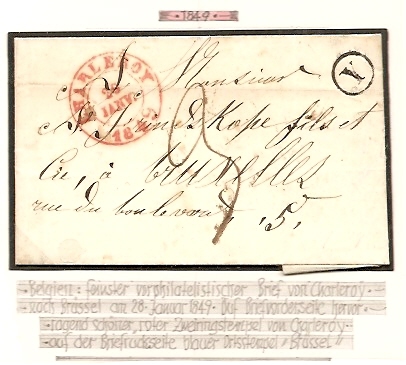 1849
CHARLEROY
28
JANV.
Y
Monsieur
Kope fils et
Cie, à bruxelles
rue du boulevard, 5,
Belgien: feinster vorphilatelistischer Brief von Charleroy
nach Brüssel am 28. Januar 1849. Auf Briefvorderseite hervor-
ragend schöner, roter Zweiringstempel von Charleroy
auf der Briefrückseite blauer Ortsstempel "Brüssel"